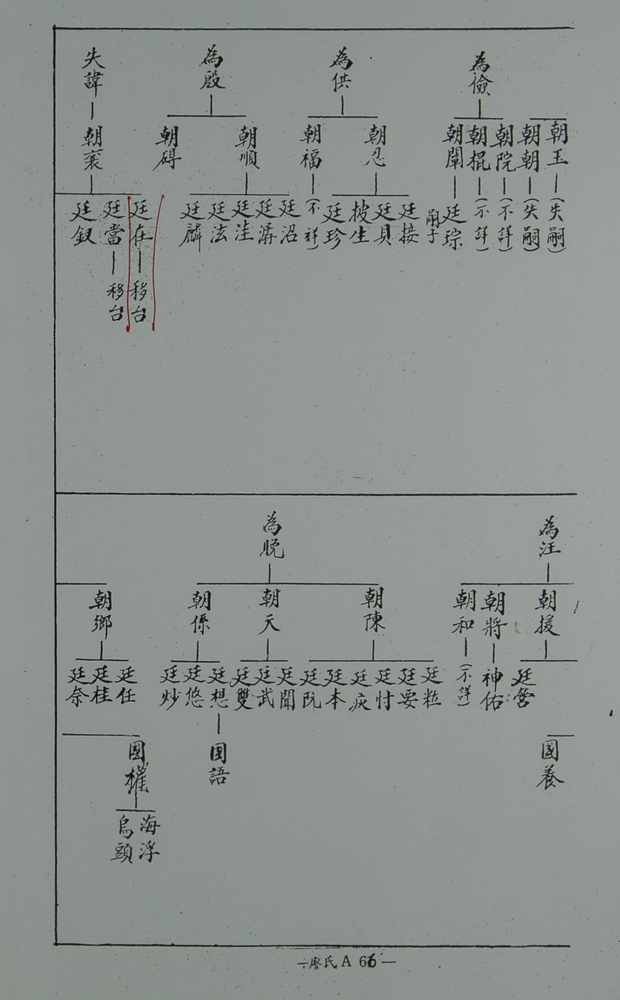 為儉
為供
為殷
失諱
朝玉
朝朝
朝院
朝掍
朝闈
朝忍
朝福
朝順
朝碍
朝褒
(失嗣)
(失嗣)
(不詳)
(不詳)
廷琮
嗣子
廷接
廷貝
披生
廷珍
(不詳)
廷沼
廷溝
廷洼
廷法
廷麟
廷在
移台
廷當
移台
廷釵
為汪
為脫
朝援
朝將
朝和
朝陳
朝天
朝係
朝鄉
神佑
(不詳)
廷粒
廷要
廷忖
廷本
廷阮
廷聞
廷武
廷雙
廷想
廷悠
廷炒
廷任
廷桂
廷奈
國養
国語
國權
海浮
烏頭
—廖氏A 66—